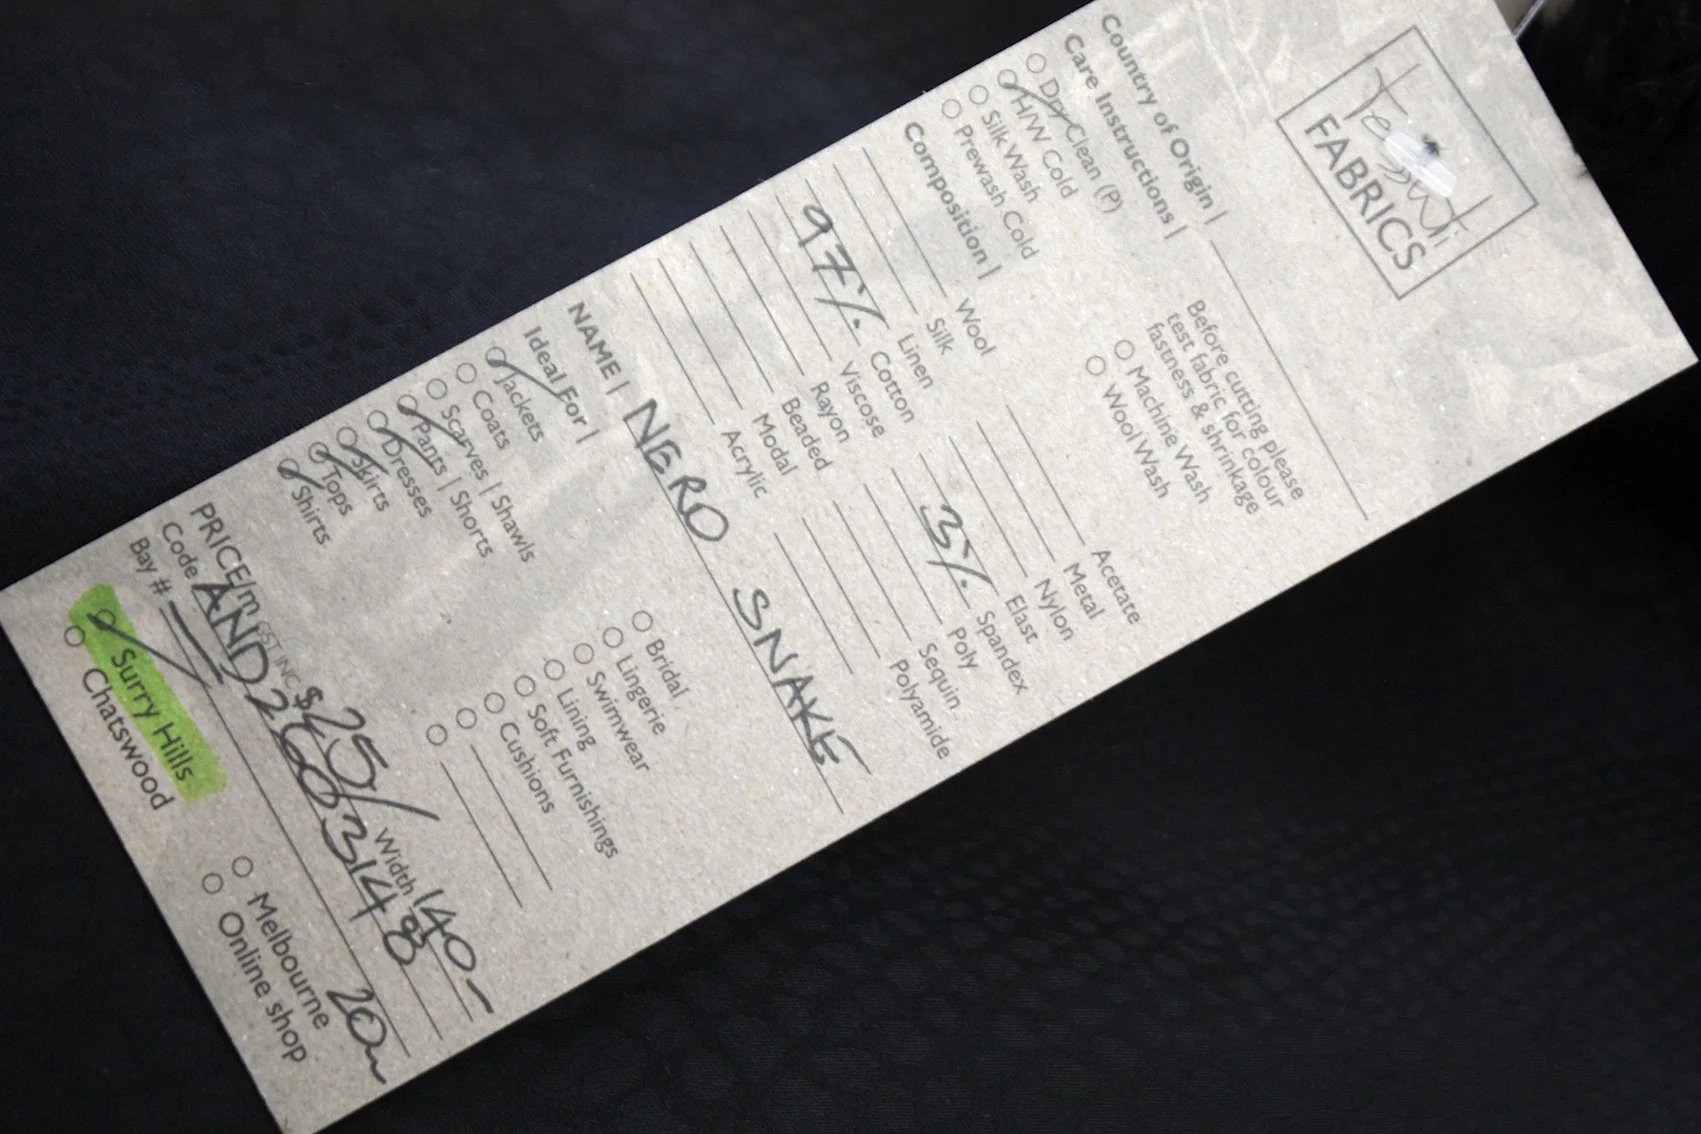 Tessuti
FABRICS
Country of Origin |
Care Instructions |
Dry Clean (P)
H/W Cold
Silk Wash
Prewash Cold
Before cutting please
test fabric for colour
fastness & shrinkage
Machine Wash
Wool Wash
Composition |
Wool
Silk
Linen
97% Cotton
Viscose
Rayon
Beaded
Modal
Acrylic
Acetate
Metal
Nylon
Elast
3% Spandex
Poly
Sequin
Polyamide
NAME | NERO SNAKE
Ideal For |
Jackets
Coats
Scarves | Shawls
Pants | Shorts
Dresses
Skirts
Tops
Shirts
Bridal
Lingerie
Swimwear
Lining
Soft Furnishings
Cushions
PRICE/m GST INC $25/ Width 140-
Code AND2603148
Bay # 20m
Surry Hills
Chatswood
Melbourne
Online shop